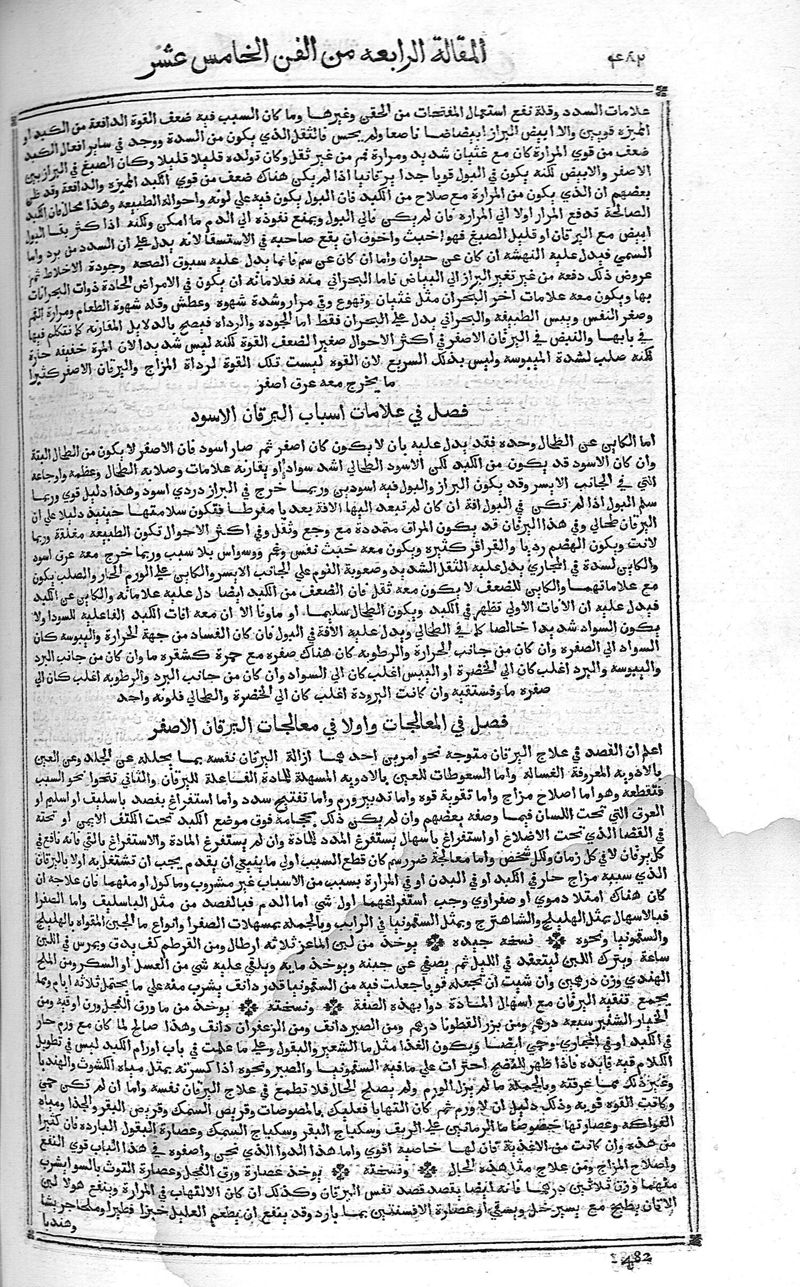 ٤٨٢ المقالة الرابعه من الفن الخامس عشر
علامات السدد وقلة نفع استعمال المفتحات من الحقن وغيرها وما كان السبب فيه ضعف القوة الدافعة من الكبد او
المميزه قوبين والا ابيض البراز ابيضاضا ناصعا ولم يحس فالثقل الذي يكون من السدة ووجد في ساير افعال الكبد
ضعف من قوي المرارة كان مع غثيان شديد ومرارة فم من غير ثقل وكان تولده قليلا قليلا وكان الصبغ في البراز بين
الاصفر والابيض لكنه يكون في البول قويا جدا يرقانيا اذا لم يكن هناك ضعف من قوي الكبد المميزة والدافعة وقد ظن
بعضهم ان الذي يكون من المرارة مع صلاح من الكبد فان البول يكون فيه علي لونه واحواله الطبيعه وهذا محال فان الكبد
الصالحة تدفع المرار اولا الي المراره فان لم يكن فالي البول ويمنع نفوذه الي الدم ما امكن ولكنه اذا كثر بقا البول
ابيض مع اليرقان او قليل الصبغ فهو اخبث واخوف ان يقع صاحبه في الاستسقا لانه يدل علي ان السدد من برد واما
السمي فيدل عليه النهشة ان كان عن حيوان واما ان كان عن سم فانما يدل عليه سبوق الصحه وجودة الاخلاط ثم
عروض ذلك دفعة من غير تغير البراز الي البياض فاما البحراني منه فعلاماته ان يكون في الامراض الحادة ذوات البحرانات
بها ويكون معه علامات اخر البحران مثل غثيان وتهوع وقي مرار وشدة شهوة وعطش وقله شهوة الطعام ومرارة الفم
وصغر النفس ويبس الطبيعه والبحراني يدل علي البحران فقط اما الجوده والرداه فيصح بالدلايل المقارنه كما نتكلم فيها
في بابها والنبض في اليرقان الاصفر في اكثر الاحوال صغير لضعف القوة لكنه ليس شديدا لان المرة خفيفه حارة
لكنه صلب لشدة اليبوسه وليس بذلك السريع لان القوه ليست تلك القوة لرداة المزاج واليرقان الاصفر كثيرا
ما يخرج معه عرق اصفر
فصل في علامات اسباب اليرقان الاسود
اما الكاين عن الطحال وحده فقد يدل عليه بان لا يكون كان اصفر ثم صار اسود فان الاصفر لا يكون من الطحال البتة
وان كان الاسود قد يكون من الكبد لكن الاسود الطحالي اشد سوادا ويقارنه علامات وصلابه الطحال وعظمه واوجاعه
التي في الجانب الايسر وقد يكون البراز والبول فيه اسودين وربما خرج في البراز دردي اسود وهذا دليل قوي وربما
سلم البول اذا لم تكن في البول افة ان كان لم تبعد اليها الافة بعد يا مفرطا فتكون سلامتها حينيذ دليلا علي ان
اليرقان طحالي وفي هذا اليرقان قد يكون المراق متمددة مع وجع وثقل وفي اكثر الاحوال تكون الطبيعه معتقلة وربما
لانت ويكون الهضم رديا والقراقر كثيره ويكون معه خبث نفس وغم ووسواس بلا سبب وربما خرج معه عرق اسود
والكاين لسدة في المجاري يدل عليه الثقل الشديد وصعوبة النوم علي الجانب الايسر والكاين علي الورم الحار والصلب يكون
مع علاماتهما والكاين للضعف لا يكون معه ثقل فان الضعف من الكبد ايضا دل عليه علاماته والكاين عن الكبد
فيدل عليه ان الافات الاولي تظهر في الكبد ويكون الطحال سليما او ماوفا الا ان معه افات الكبد الفاعليه للسودا ولا
يكون السواد شديدا خالصا كما في الطحالي ويدل عليه الافة في البول فان كان الفساد من جهة الحرارة واليبوسه كان
السواد الي الصفره وان كان من جانب الحرارة والرطوبه كان هناك صفره مع حمرة كشقره ما وان كان من جانب البرد
واليبوسه والبرد اغلب كان الي الخضرة او اليبس اغلب كان الي السواد وان كان من جانب البرد والرطوبه اغلب كان الي
صفره ما وفستقيه وان كانت البرودة اغلب كان الي الخضرة والطحالي فلونه واحد
فصل في المعالجات واولا في معالجات اليرقان الاصفر
اعلم ان القصد في علاج اليرقان متوجه نحو امرين احدهما ازالة اليرقان نفسه بما يحلله عن الجلد وعن العين
بالادويه المعروفة الغساله واما السعوطات للعين بالادويه المسهلة للمادة الفاعلة لليرقان والثاني تنحوا نحو السبب
فتقطعه وهو اما اصلاح مزاج واما تقوية قوه واما تدبير ورم واما تفتيح سدد واما استفراغ بفصد باسليق او اسيلم او
العرق التي تحت اللسان فيما وصفه بعضهم وان لم يكن ذلك بحجامة فوق موضع الكبد تحت الكتف الايمن او تحته
في الفضا الذي تحت الاضلاع او استفراغ باسهال يستفرغ المدد للمادة وان لم يستفرغ المادة والاستفراغ بالقي فانه نافع في
كل يرقان لا في كل زمان ولكل شخص واما معالجة ضرر سم كان قطع السبب اولي ما ينبغي ان يقدم يجب ان تشتغل به اولا باليرقان
الذي سببه مزاج حار في الكبد او في البدن او في المرارة بسبب من الاسباب غير مشروب وماكول او منهما فان علاجه ان
كان هناك امتلا دموي او صفراوي وجب استفراغهما اول شي اما الدم فبالفصد من مثل الباسليق واما الصفرا
فبالاسهال بمثل الهليلج والشاهترج وبمثل السقمونيا في الرايب وبالجملة بمسهلات الصفرا وانواع ما الجبن المقواه بالهليلج
والسقمونيا ونحوه ✽ نسخه جيده ✽ يوخذ من لبن الماعز ثلاثه ارطال ومن القرطم كف يدق ويمرس في اللبن
ساعة ويترك اللبن ليتعقد في الليل ثم يصفي عن جبنه ويوخذ مايه ويلقي عليه شي من العسل او السكر ومن الملح
الهندي وزن درهمين وان شيت ان تجعله قويا جعلت فيه من السقمونيا قدر دانق يشرب منه علي ما يحتمل ثلاثه ايام وما
يجمع تنقيه اليرقان مع اسهال المادة دوا بهذه الصفة ✽ ونسخته ✽ يوخذ من ما ورق الفجل وزن اوقيه ومن
الخيار الشنبر سبعه درهم ومن بزر القطونا درهم ومن الصبر دانق ومن الزعفران دانق وهذا صالح لما كان مع ورم حار
في الكبد او في المجاري وحمي ايضا ويكون الغذا مثل ما الشعير والبقول وعلي ما علمت في باب اورام الكبد ليس في تطويل
الكلام فيه فايده فاذا ظهر النضج اجترات علي ما فيه السقمونيا والصبر ونحوه اذا كسرته بمثل مياه الكشوث والهندبا
وغير ذلك مما عرفته وبالجملة ما لم يزل الورم ولم يصلح الحال فلا تطمع في علاج اليرقان نفسه واما ان لم تكن حمي
وكانت القوه قويه وذلك دليل ان لا ورم ثم كان التهابا فعليك بالمصوصات وقريص السمك وقريص البقر والجدا ومياه
الفواكه وعصاراتها خصوصا ما الرمانين علي الريق وسكباج البقر وسكباج السمك وعصارة البقول البارده فان كثيرا
من هذه وان كانت من الاغذية فان لها خاصية اقوي واما هذا الدوا الذي نحن واصفوه في هذا الباب قوي النفع
واصلاح المزاج ومن علاج مثل هذه الحال ✽ ونسخته ✽ يوخذ عصارة ورق الفجل وعصارة التوث بالسوا يشرب
منهما وزن ثلاثين درهما فانه ايضا يقصد قصد نفس اليرقان وكذلك ان كان الالتهاب في المرارة وينفع هولا لبن
الاتان يطبخ مع يسير خل ويسقي او عصارة الافسنتين بما بارد وقد ينفع ان يطعم العليل خبزا فطيرا وملحا جريشا
وهندبا
482